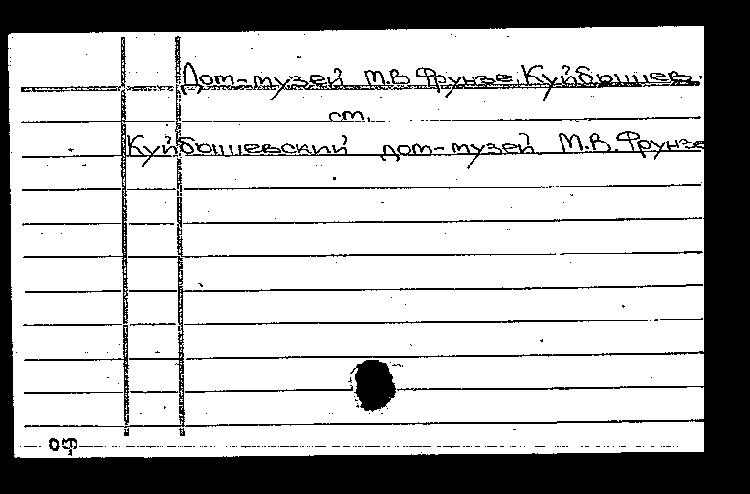 Дом-музей М.В. Фрунзе. Куйбышев.
см.
Куйбышевский дом-музей М.В. Фрунзе
ОФ